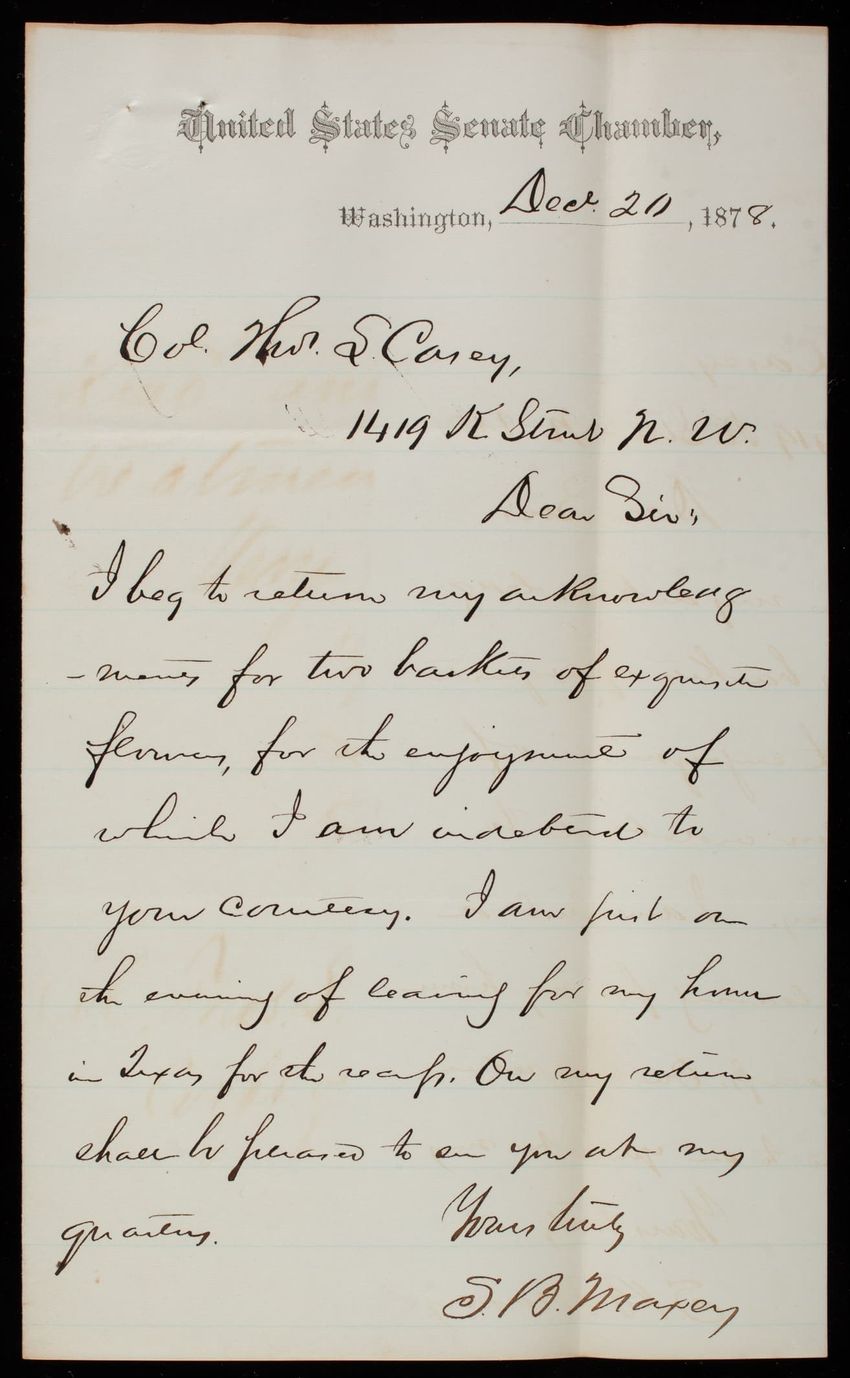 United States Senate Chamber,
Washington, Decr. 20, 1878.
Col. Thos. L. Casey,
1419 K Street N. W.
Dear Sir;
I beg to return my acknowledg
-ments for two baskets of exquisite
flowers, for the enjoyment of
which I am indebted to
your courtesy. I am just on
the evening of leaving for my home
in Texas for the recess. On my return
shall be pleased to see you at my
quarters.
Yours truly
S. B. Maxey